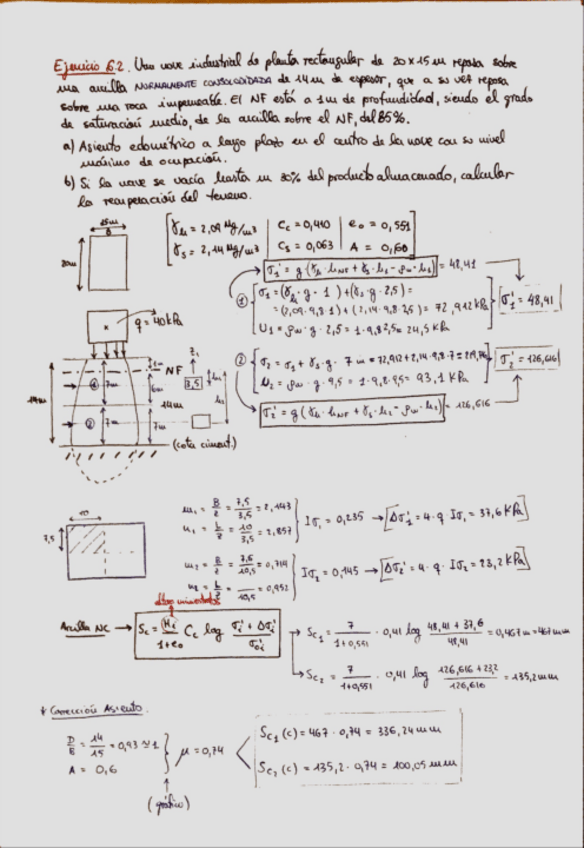 Ejercicio 6.2. Una nave industrial de planta rectangular de 20 x 15 m reposa sobre
una arcilla NORMALMENTE CONSOLIDADA de 14 m de espesor, que a su vez reposa
sobre una roca impermeable. El NF está a 1 m de profundidad, siendo el grado
de saturación medio, de la arcilla sobre el NF, del 85%.
a) Asiento edométrico a largo plazo en el centro de la nave con su nivel
máximo de ocupación.
b) Si la nave se vacía hasta un 30% del producto almacenado, calcular
la recuperación del terreno.
15m
B
20m
γh = 2,09 Mg/m³ | Cc = 0,410 | e0 = 0,551
γs = 2,14 Mg/m³ | Cs = 0,063 | A = 0,60
σ1' = g·(γh·hNF + γs·h1 - ρw·h1) = 48,41
① σ1 = (γh·g·1) + (γs·g·2,5) =
= (2,09·9,8·1) + (2,14·9,8·2,5) = 72,912 kPa
U1 = ρw·g·2,5 = 1·9,8·2,5 = 24,5 kPa
σ1' = 48,41
q = 40 kPa
NF
1m
7m
6m
3,5
14m
14m
① 
② 7m
7m
(cota ciment.)
② σ2 = σ1 + γs·g·7m = 72,912 + 2,14·9,8·7 = 219,716
U2 = ρw·g·9,5 = 1·9,8·9,5 = 93,1 kPa
σ2' = 126,616
σ2' = g(γh·hNF + γs·h2 - ρw·h2) = 126,616
10
7,5
m1 = B/z = 7,5/3,5 = 2,143
n1 = L/z = 10/3,5 = 2,857
Iσ1 = 0,235 → Δσ1' = 4·q·Iσ1 = 37,6 kPa
m2 = B/z = 7,5/10,5 = 0,714
n2 = L/z = /10,5 = 0,952
Iσ2 = 0,145 → Δσ2' = 4·q·Iσ2 = 23,2 kPa
Arcilla NC → Sc = Hi/(1+e0) Cc log (σi' + Δσi')/σ0i'
Sc1 = 7/(1+0,551) · 0,41 log (48,41 + 37,6)/48,41 = 0,467 m = 467 mm
Sc2 = 7/(1+0,551) · 0,41 log (126,616 + 23,2)/126,616 = 135,2 mm
* Corrección Asiento.
D/B = 14/15 = 0,93 ≃ 1
A = 0,6
μ = 0,74
(gráfico)
Sc1 (c) = 467 · 0,74 = 336,24 mm
Sc2 (c) = 135,2 · 0,74 = 100,05 mm